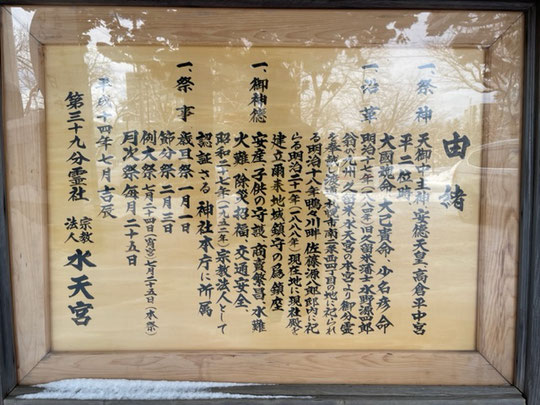 由緒
一、祭神
天御中主神 安徳天皇 高倉平中宮
平二位時
大国魂命 大己貴命・少名彦命
一、沿革
明治十七年(一八八四年)旧久留米藩士水野源四郎
翁が九州久留米水天宮の本宮より御分霊
を奉載し渡道、札幌市南二条西四丁目の地に祀られ
る明治十八年鴨々川畔佐藤源八郎邸内に祀
らる明治二十一年(一八八八年)現在地に現社殿を
建立爾来地域鎮守の為鎮座
一、御神徳
安産、子供の守護、商賣繁昌、水難
火難、除災招福、交通安全、
昭和二十七年(一九五二年)宗教法人として
認証さる 神社本庁に所属
一、祭事
歳旦祭 一月一日
節分祭 二月三日
例大祭 七月二十四日(宵宮)七月二十五日(本祭)
月次祭 毎月二十五日
平成十四年七月吉辰
第三十九分霊社 宗教法人 水天宮